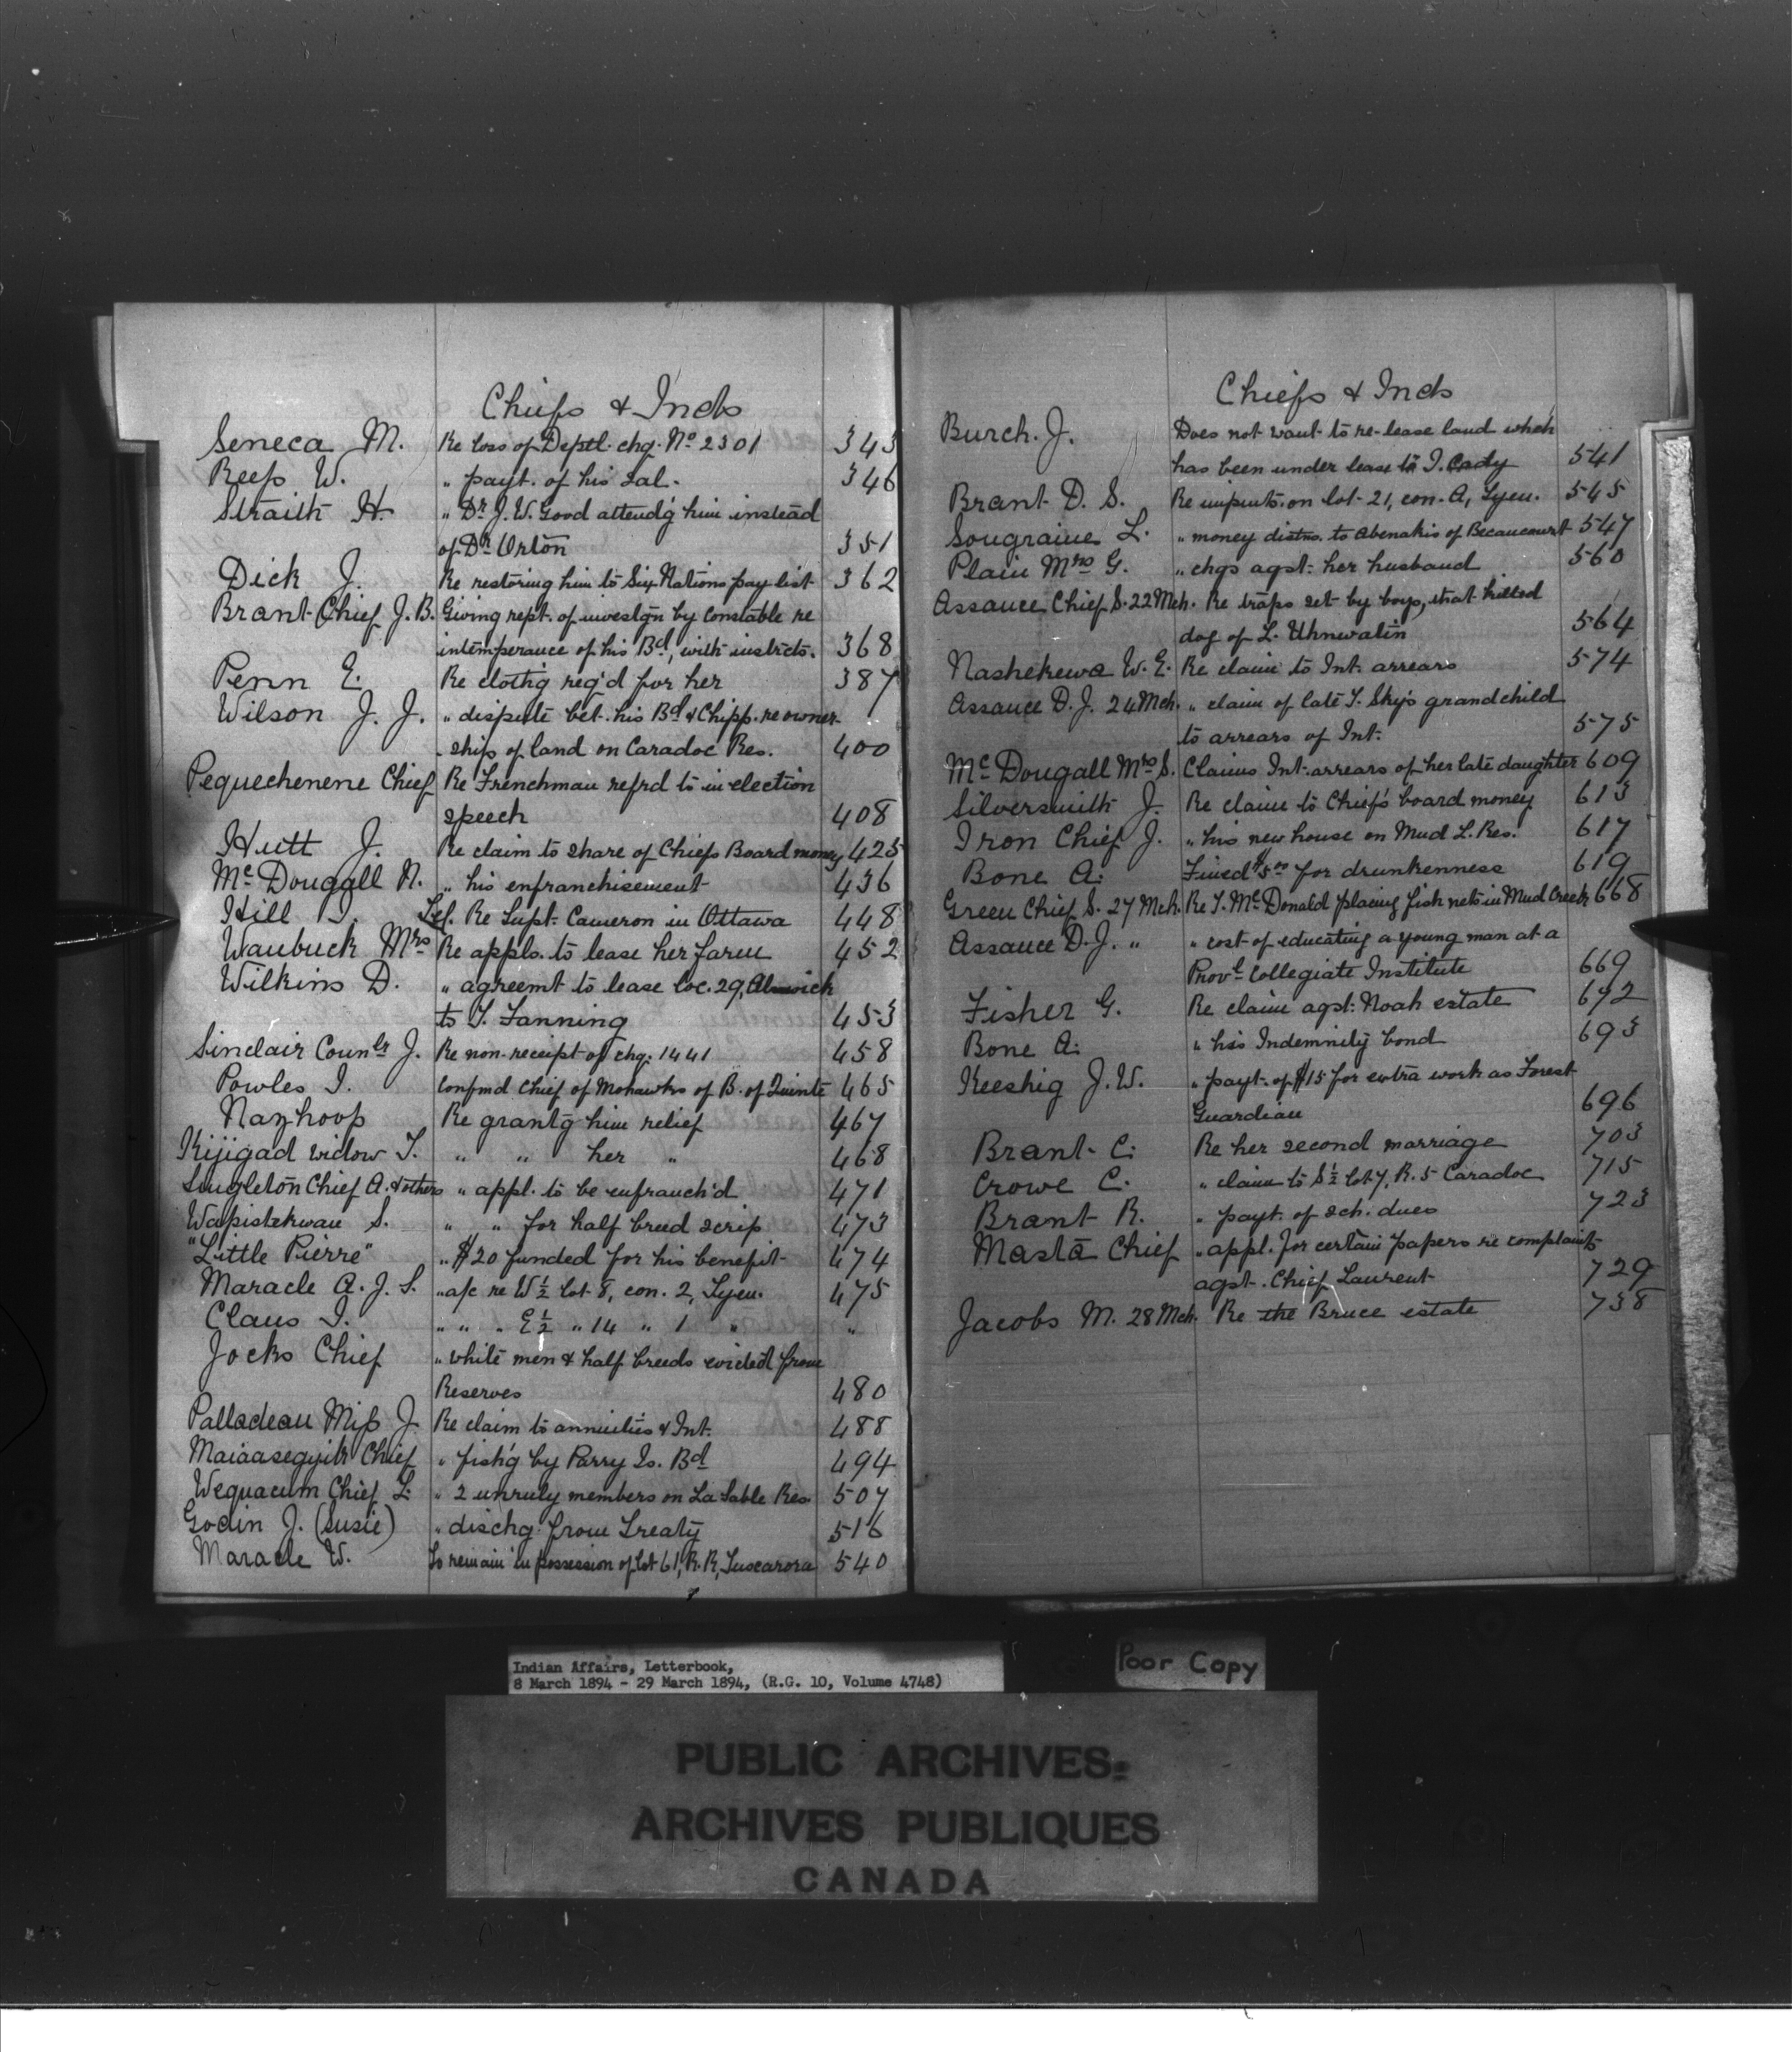 Chiefs & Inds
Seneca M. Re loss of Deptl. chq. No 2301 343
Rees W. " payt. of his sal. 346
Straith H. " Dr. J. W. Good attend'g him instead
of Dr Orton 351
Dick J. Re restoring him to Six Nations pay list 362
Brant Chief J. B. Giving rept. of investg'n by Constable re
intemperance of his Bd, with instrcts. 368
Penn E. Re cloth'g req'd for her 387
Wilson J. J. " dispute bet. his Bd & Chipp. re owner-
ship of land on Caradoc Res. 400
Pequechenene Chief Re Frenchman refrd to in election
speech 408
Hutt J. Re claim to share of Chiefs Board money 425
Mc Dougall N. " his enfranchisement 436
Hill J. Tel. Re Supt. Cameron in Ottawa 448
Waubuck Mrs Re appln. to lease her farm 452
Wilkins D. " agreemt to lease loc. 29, Alnwick
to T. Fanning 453
Sinclair Counlr J. Re non-receipt of chq. 1441 458
Powles I. Confmd Chief of Mohawks of B. of Quinte 465
Nazhoop Re grant'g him relief 467
Kijigad widow T. " " her " 468
Singleton Chief A. & others " appl. to be enfranch'd 471
Wapistekwan S. " " for half breed scrip 473
"Little Pierre" " $20 funded for his benefit 474
Maracle A. J. S. " a/c re W½ lot 8, con. 2, Tyen. 475
Claus I. " " " E½ " 14 " 1 " "
Jocks Chief " white men & half breeds evicted from
Reserves 480
Palladeau Miss J. Re claim to annuities & Int. 488
Chief " fish'g by Parry Is. Bd 494
Wequacum Chief L. " 2 unruly members on La Sable Res. 507
Godin J. (Susie) " dischg. from Treaty 516
Maracle W. To remain in possession of lot 61, R. R, Tuscarora 540
Chiefs & Inds
Burch. J. Does not want to re-lease land which
has been under lease to I. Cady 541
Brant D. S. Re impmts. on lot 21, con. A, Tyen. 545
Sougraine L. " money distn. to Abenakis of Becancourt 547
Plain Mrs G. " chgs agst. her husband 560
Assance Chief S. 22 Mch. Re traps set by boys, that killed
dog of L. 564
Nashekewa W. E. Re claim to Int. arrears 574
Assance D. J. 24 Mch. " claim of late T. Sky's grandchild
to arrears of Int. 575
Mc Dougall Mrs S. Claims Int. arrears of her late daughter 609
Silversmith J. Re claim to Chief's board money 613
Iron Chief J. " his new house on Mud L. Res. 617
Bone A. Fined $5.00 for drunkenness 619
Green Chief S. 27 Mch. Re T. McDonald placing fish nets in Mud Creek 668
Assance D. J. " " cost of educating a young man at a
Provl. Collegiate Institute 669
Fisher G. Re claim agst. Noah estate 692
Bone A. " his Indemnity bond 693
Keeshig J. W. " payt. of $15 for extra work as Forest
Guardian 696
Brant C. Re her second marriage 703
Crowe C. " claim to S½ lot 7, R. 5 Caradoc 715
Brant R. " payt. of sch. dues 723
Masta Chief " appl. for certain papers re complaints
agst. Chief Laurent 729
Jacobs M. 28 Mch. Re the Bruce estate 738
Indian Affairs, Letterbook,
8 March 1894 - 29 March 1894, (R.G. 10, Volume 4748)
Poor Copy
PUBLIC ARCHIVES
ARCHIVES PUBLIQUES
CANADA